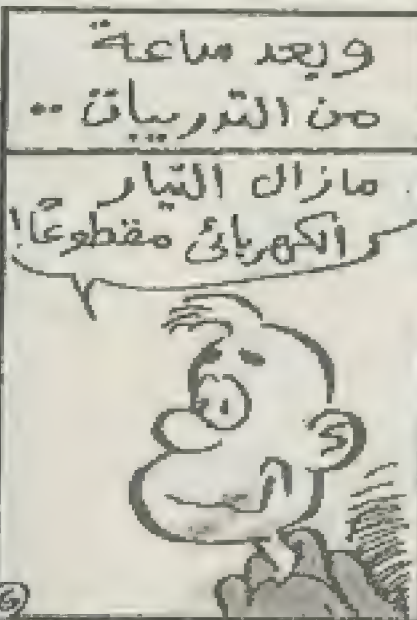 وبعد ساعة
من التدريبات ..
مازال التيار
الكهربائى مقطوعًا!
6